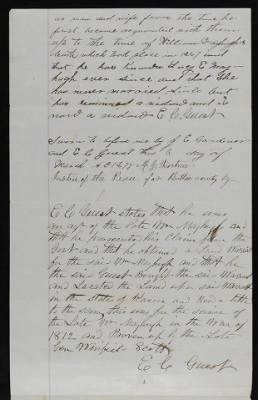 as man and wife from the time he
first became acquainted with them
up to the time of William
death which took place in 1847 and
that he has known Lucy E
ever since and that she
has never married since but
has remained a widow and is
now a widow E C Guest
Sworn to before me by J E Gardener
and E C Guest this day of
March AD 1879
Justice of the Peace for Butler county Ky
E C Guest states that he was
of the late Wm
that he his claim from the
Govt and that he obtained a Land Warrant
for the said Wm and that he
the said Guest bought the said Warrant
and Located the Land upon said Warrant
in the State of and had a title
to the same this was for the service of
the Late Wm in the War of
1812 and Proven up by the Late
Gen Winfield Scott
E C Guest